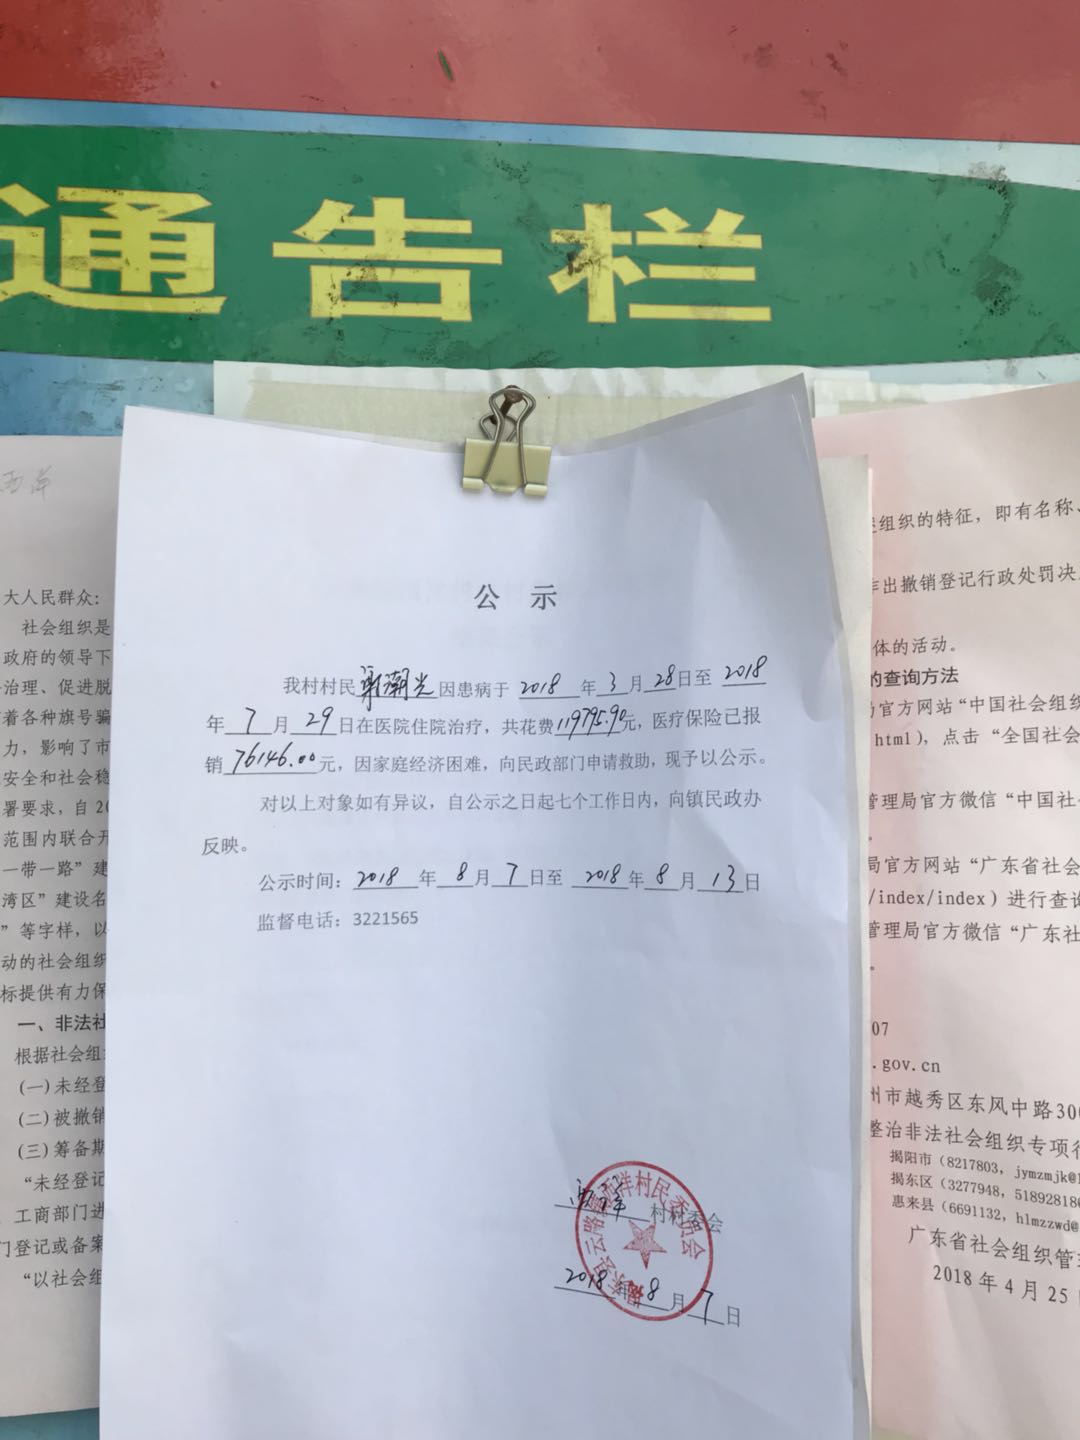 通告栏
西洋
大人民群众：
社会组织是
政府的领导下
治理、促进脱
着各种旗号骗
力，影响了市
安全和社会稳
署要求，自20
范围内联合开
一带一路”建
湾区”建设名
”等字样，以
动的社会组织
标提供有力保
一、非法社
根据社会组
(一)未经登
(二)被撤销
(三)筹备期
“未经登记
工商部门进
门登记或备案
“以社会组
公 示
我村村民 潮光因患病于 2018 年 3 月 28 日至 2018
年 7 月 29 日在医院住院治疗，共花费119795.90元，医疗保险已报
销 76146.00 元，因家庭经济困难，向民政部门申请救助，现予以公示。
对以上对象如有异议，自公示之日起七个工作日内，向镇民政办
反映。
公示时间：2018 年 8 月 7 日至 2018 年 8 月 13 日
监督电话：3221565
西洋 村村委会
云路镇西洋村民委员会
2018 年 8 月 7 日
组织的特征，即有名称、
出撤销登记行政处罚决
体的活动。
的查询方法
官方网站“中国社会组织
html)，点击“全国社会
管理局官方微信“中国社
局官方网站“广东省社会
/index/index）进行查询
管理局官方微信“广东社
07
.gov.cn
州市越秀区东风中路30
整治非法社会组织专项行
揭阳市（8217803，jymzmjk@1
揭东区（3277948，518928186
惠来县（6691132，hlmzzwd@
广东省社会组织管
2018年4月25